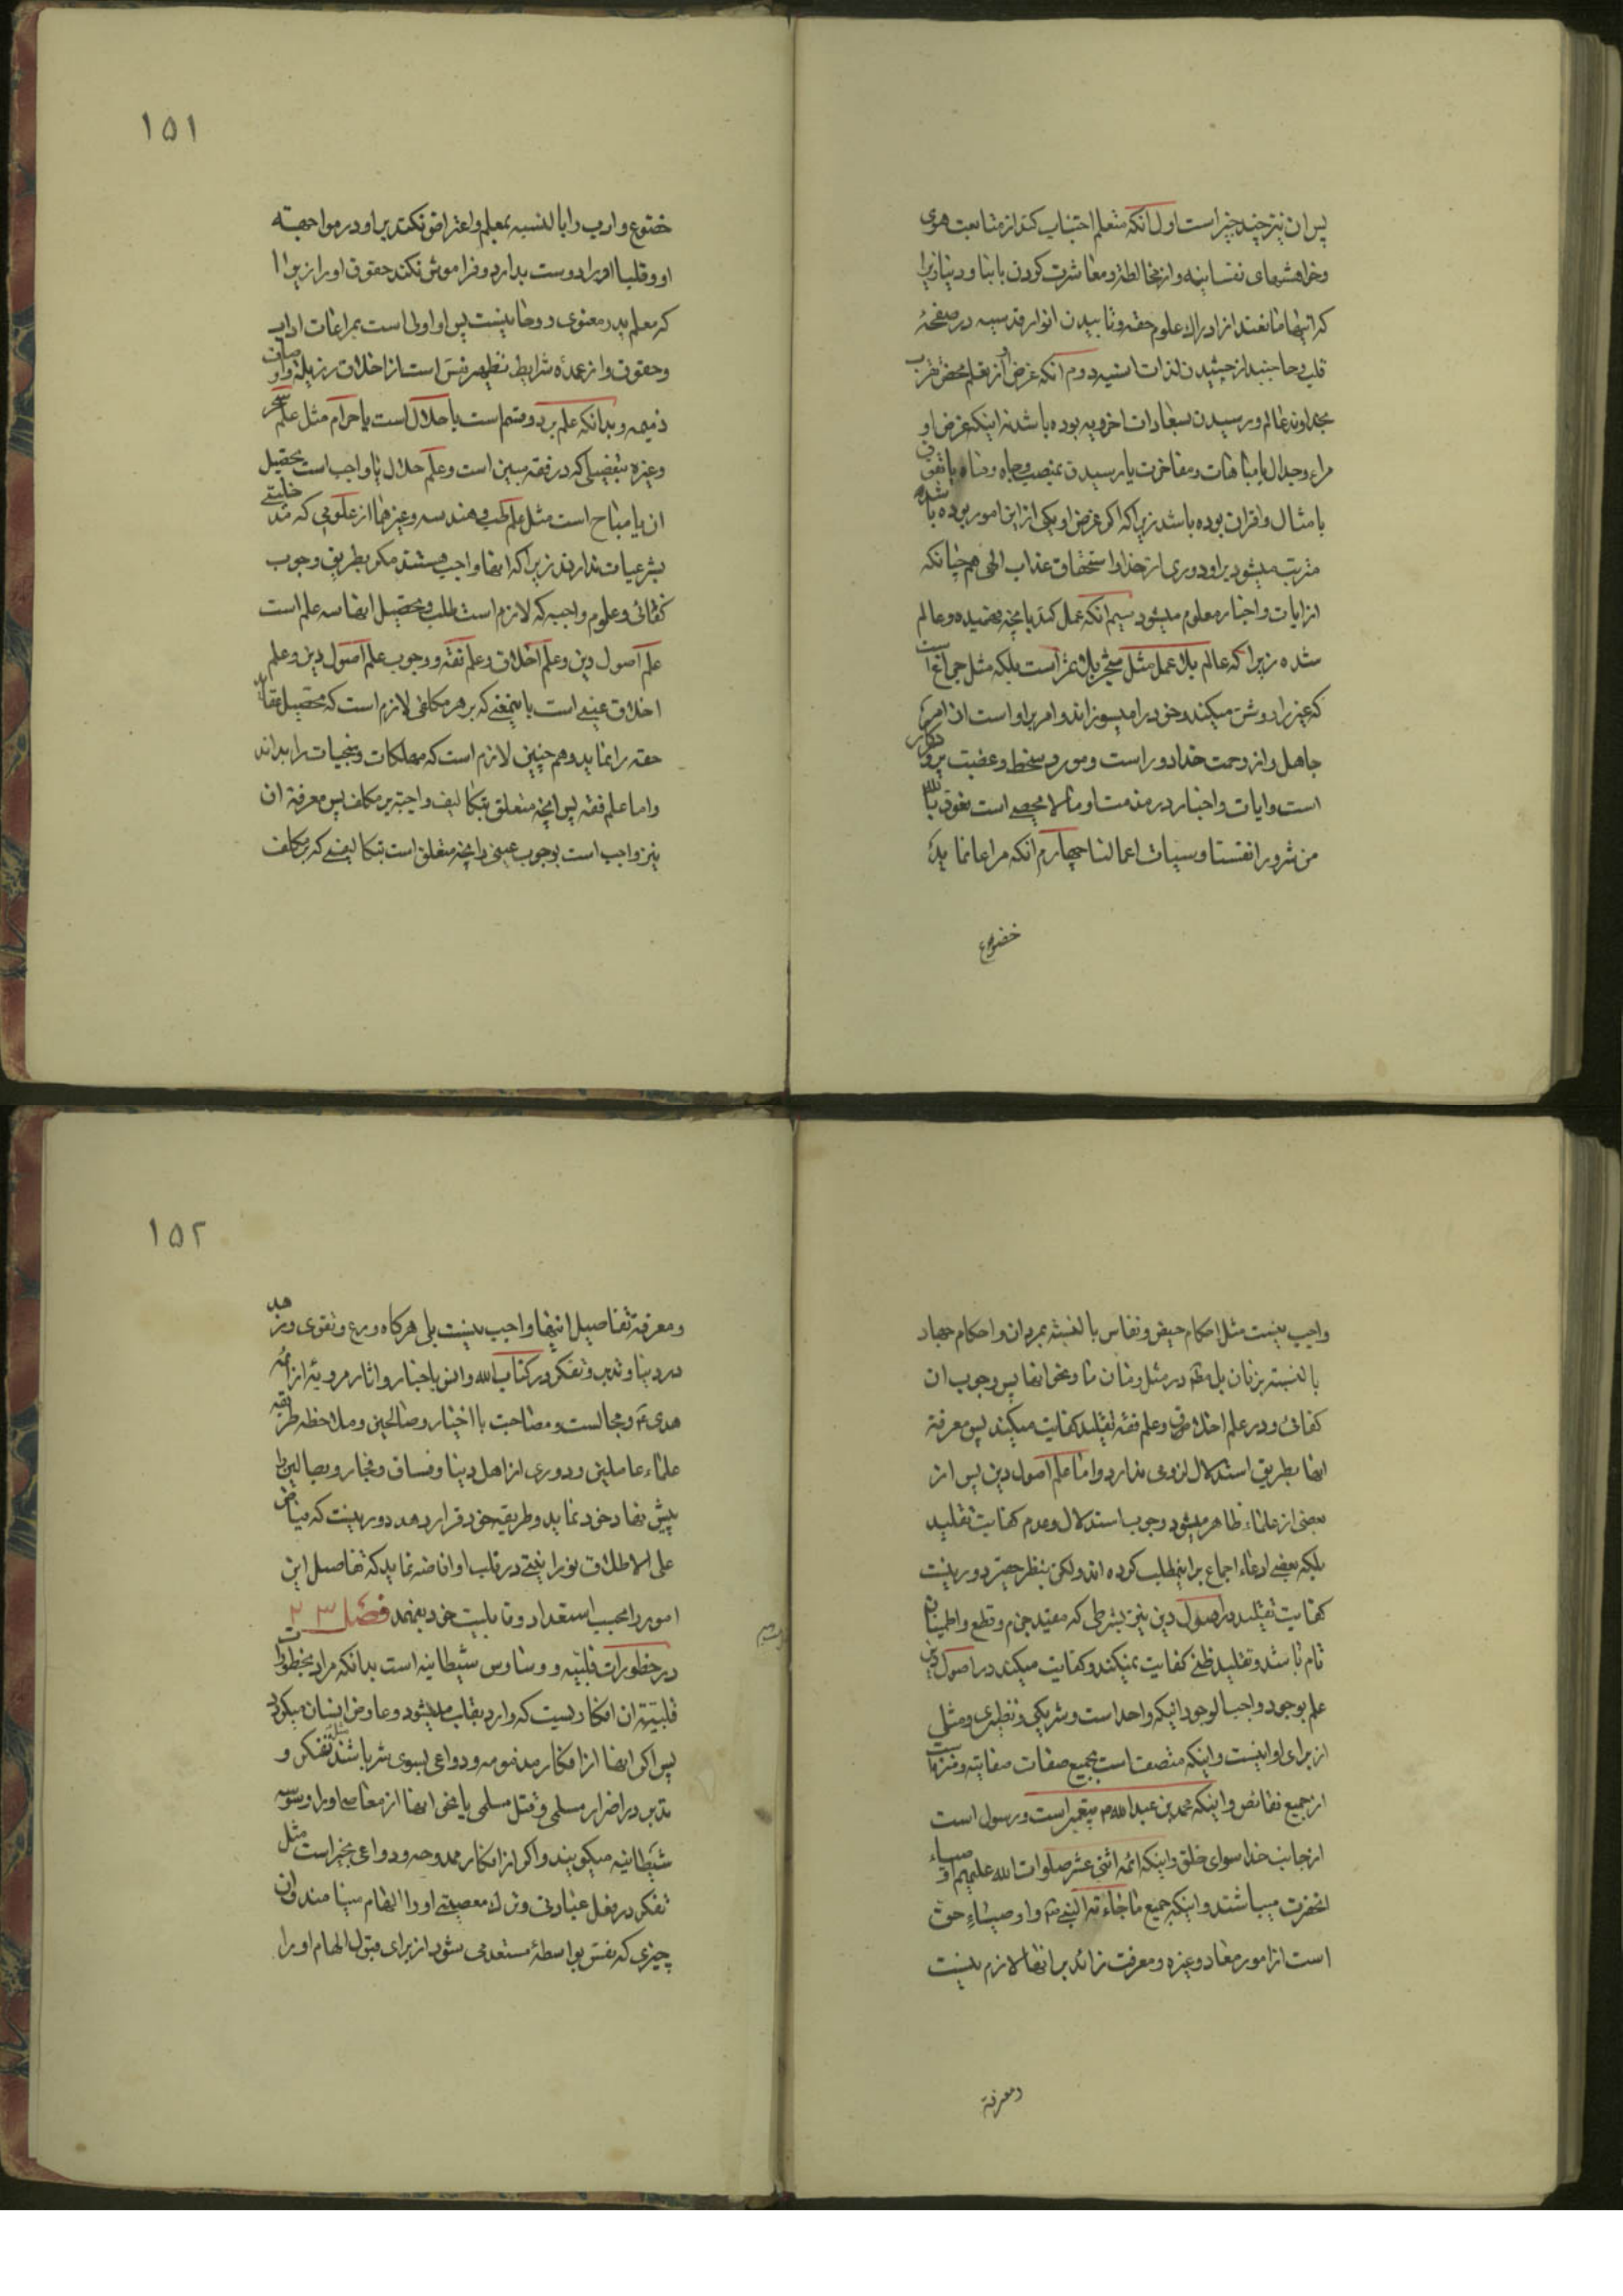 پس ان نیز چند چیز است اول انکه متعلم اجتناب کند از متابعت هوی
وخواهشهای نفسانیه واز مخالطه ومعاشرت کردن با ابنا ودنیا زیرا
که اینها مانعند از ادراك علوم حقه وتابیدن انوار قدسیه در صفحهٔ
قلب وچشیدن لذات انسیه دوم انکه غرض او از تعلم محض تقرب
بخداوند عالم ورسیدن بسعادات اخرویه بوده باشد نه اینکه غرض او
مراء وجدال یا مباهات ومفاخرت یا رسیدن بمنصب وجاه ومال یا تفوق
بامثال واقران بوده باشد زیرا که اکر غرض او یکی از این امور بوده باشد
مترتب میشود براو دوری از خدا واستحقاق عذاب الهی هم چنانکه
از ایات واخبار معلوم میشود سیم انکه عمل کند بانچه فهمیده وعالم
شده زیرا که عالم بلا عمل مثل شجر بلا ثمر است بلکه مثل چراغ است
که غیر را روشن میکند وخود را میسوزاند وامر براو است از امر
جاهل واز رحمت خدا دور است ومورد سخط وغضب پروردکار
است وایات واخبار در مذمت او مما لا یحصی است نعوذ بالله
من شرور انفسنا وسیات اعمالنا چهارم انکه مراعا نماید
خضوع
۱۵۱
خضوع وادب را بالنسبه بمعلم واعتراض نکند براو در مواجهه
او وقلبا او را دوست بدارد وفراموش نکند حقوق او را زیرا
که معلم پدر معنوی وروحانیست پس او اولی است بمراعات اداب
وحقوق واز عمدهٔ شرایط تطهیر نفس است از اخلاق رذیله واوصاف
ذمیمه وبدانکه علم بر دو قسم است یا حلال است یا حرام مثل علم سحر
وغیره بتفصیلی که در فقه مبین است وعلم حلال یا واجب است تحصیل
ان یا مباح است مثل علم طب وهندسه وغیرهما از علومی که مدخلیتی
بشرعیات ندارند زیرا که انها واجب هستند مکر بطریق وجوب
کفائی وعلوم واجبه که لازم است طلب وتحصیل انها سه علم است
علم اصول دین وعلم اخلاق وعلم فقه ووجوب علم اصول دین وعلم
اخلاق عینی است باینمعنی که بر هر مکلفی لازم است که تحصیل عقاید
حقه را نماید وهم چنین لازم است که مهلکات ومنجیات را بداند
واما علم فقه پس انچه متعلق بتکالیف واجبه بر مکلف پس معرفة ان
نیز واجب است بوجوب عینی وانچه متعلق است بتکالیفی که بر مکلف
واجب نیست مثل احکام حیض ونفاس بالنسبة بمردان واحکام جهاد
بالنسبة بزنان بل مط در مثل زمان ما ونحو انها پس وجوب ان
کفائی ودر علم اخلاق وعلم فقه تقلید کفایت میکند پس معرفة
انها بطریق استدلال لزومی ندارد واما علم اصول دین پس از
بعضی از علماء ظاهر میشود وجوب استدلال وعدم کفایت تقلید
بلکه بعضی ادعاء اجماع بر اینمطلب کرده اند ولکن بنظر حقیر دور نیست
کفایت تقلید در اصول دین نیز بشرطی که مفید جزم وقطع واطمینان
تام باشد وتقلید ظنی کفایت نمیکند وکفایت میکند در اصول دین
علم بوجود واجب الوجود اینکه واحد است وشریکی ونظیری ومثلی
از برای او نیست واینکه متصف است بجمیع صفات صفاتیه ومنزه است
از جمیع نقائص واینکه محمد بن عبد الله ص پیغمبر است ورسول است
از جانب خدا سوای خلق واینکه ائمه اثنی عشر صلوات الله علیهم اوصیاء
انحضرت میباشند واینکه جمیع ما جاء به النبی ص واوصیاءِ حق
است از امور معاد وغیره ومعرفت زائد بر انها لازم نیست
ومعرفة
۱۵۲
ومعرفة تفاصیل اینها واجب نیست بلی هرکاه ورع وتقوی وزهد
در دنیا وتدبر وتفکر در کتاب الله وانس باخبار واثار مرویهٔ از ائمه
هدی ع ومجالست ومصاحبت با اخیار وصالحین وملاحظه طریقه
علماء عاملین ودوری از اهل دنیا وفساق وفجار وبطالین را
پیش نهاد خود نماید وطریقه خود قرار دهد دور نیست که فیاض
علی الاطلاق نورانیتی در قلب او افاضه نماید که تفاصیل این
امور را بحسب استعداد وقابلیت خود بفهمد فصل ۲۳
در خطورات قلبیه ووساوس شیطانیه است بدانکه مراد بخطورات
قلبیه ان افکاریست که وارد بقلب میشود وعارض انسان میکردد
پس اکر انها از افکار مذمومه ودواعی بسوی شر باشند مثل تفکر و
تدبر در اضرار مسلمی وقتل مسلمی یا نحو انها از معاصی او را وسوسه
شیطانیه میکویند واکر از افکار ممدوحه ودواعی بخیر است مثل
تفکر در فعل عبادتی وترك معصیتی او را الهام مینامند وان
چیزی که نفس بواسطهٔ مستعد می شود از برای قبول الهام او را